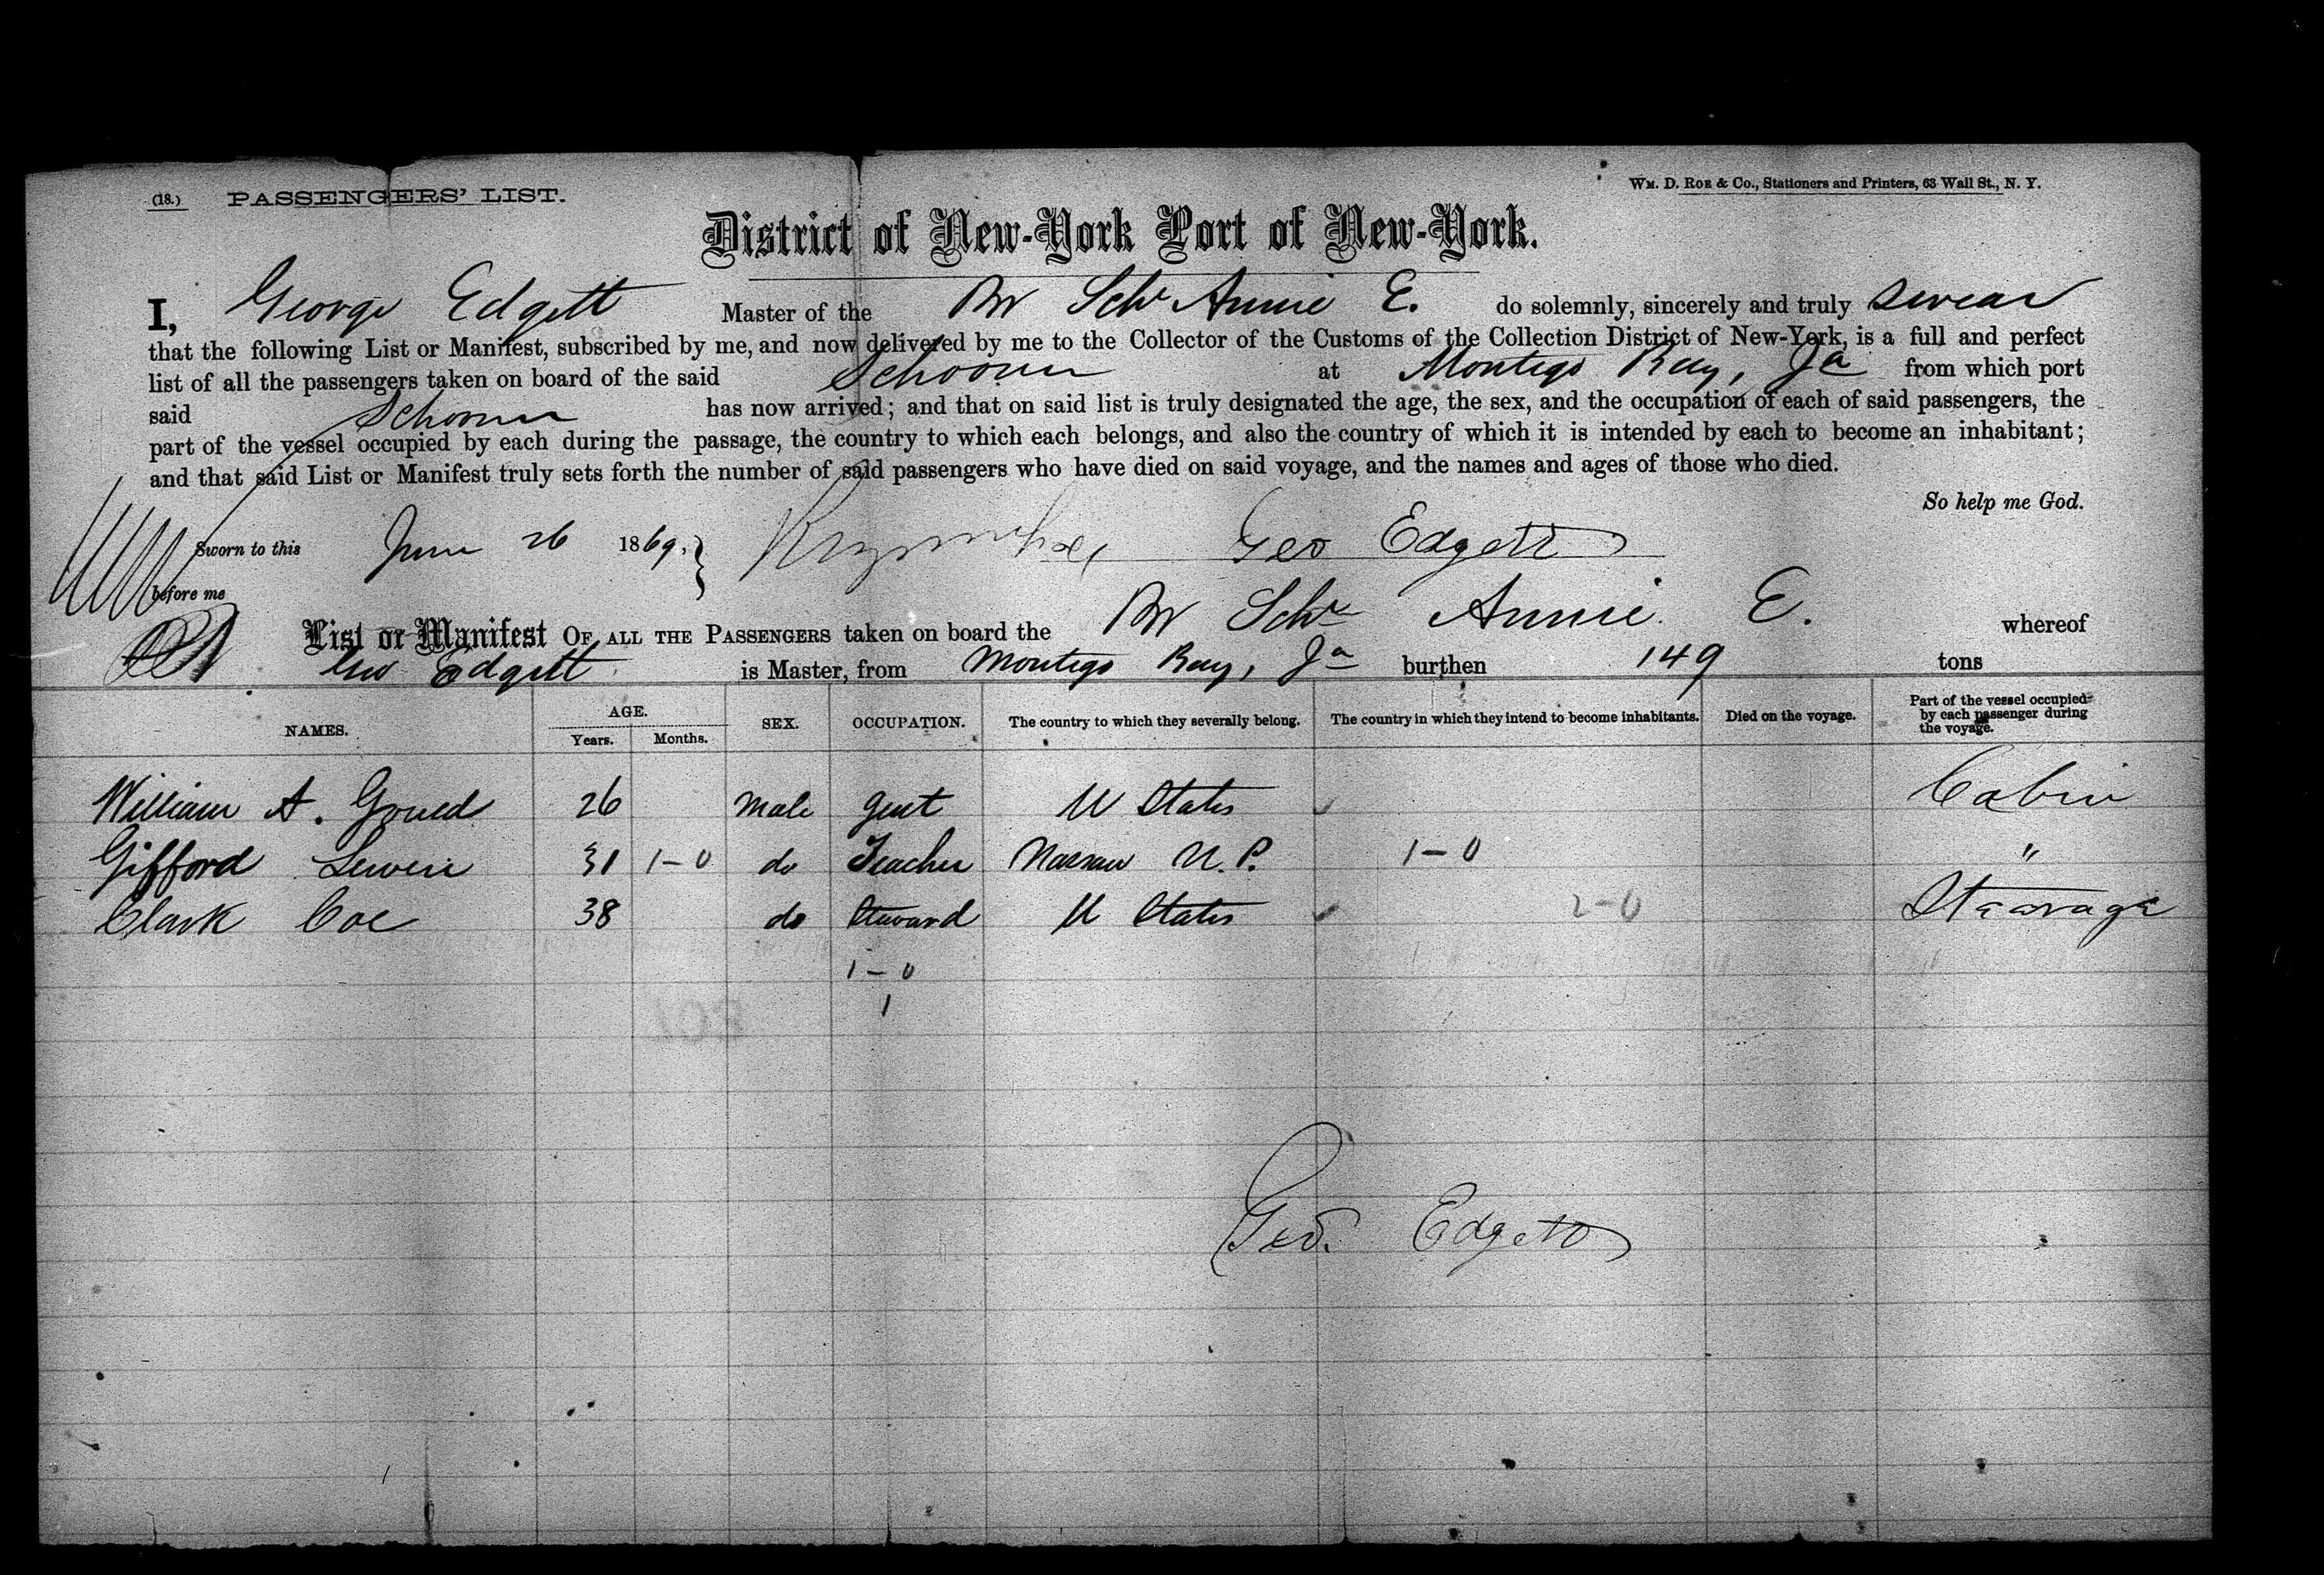 (18.) PASSENGERS' LIST.
WM. D. ROE & Co., Stationers and Printers, 63 Wall St., N. Y.
District of New-York Port of New-York.
I, George Edgett Master of the Br Schr Annie E. do solemnly, sincerely and truly swear
that the following List or Manifest, subscribed by me, and now delivered by me to the Collector of the Customs of the Collection District of New-York, is a full and perfect
list of all the passengers taken on board of the said Schooner at Montego Bay, Ja from which port
said Schooner has now arrived; and that on said list is truly designated the age, the sex, and the occupation of each of said passengers, the
part of the vessel occupied by each during the passage, the country to which each belongs, and also the country of which it is intended by each to become an inhabitant;
and that said List or Manifest truly sets forth the number of said passengers who have died on said voyage, and the names and ages of those who died.
So help me God.
Sworn to this June 26 1869, Geo Edgett
before me
List or Manifest OF ALL THE PASSENGERS taken on board the Br Schr Annie E. whereof
Geo Edgett is Master, from Montego Bay, Ja burthen 149 tons
NAMES. AGE. Years. Months. SEX. OCCUPATION. The country to which they severally belong. The country in which they intend to become inhabitants. Died on the voyage. Part of the vessel occupied by each passenger during the voyage.
William A. Gould 26 male gent U States Cabin
Gifford 31 1-0 do Teacher Nassau N. P. 1-0 "
Clark Coe 38 do Steward U States 2-0 Stearage
1-0
1
Geo. Edgett